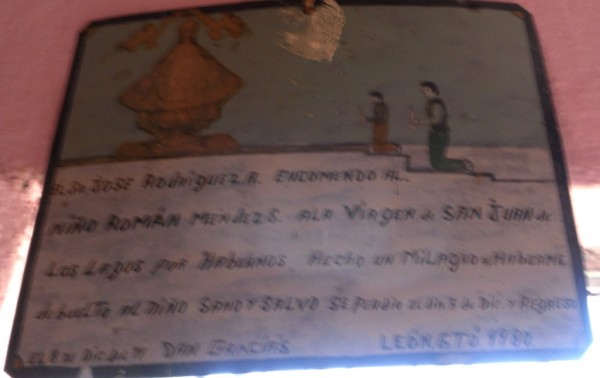 EL SR. JOSE RODRIGUEZ. R. ENCOMENDO AL.
NIÑO ROMÁN MENDEZ S. ALA VIRGEN de SAN JUAN de
LOS LAGOS POR HABERNOS HECHO UN MILAGRO HABERME
debuelto AL NIÑO SANO Y SALVO SE PERDIO EL dia 3 de DIC. Y REGRESO
EL 8 de Dic de 71 DAN GRACIAS LEÓN GTÓ 1980